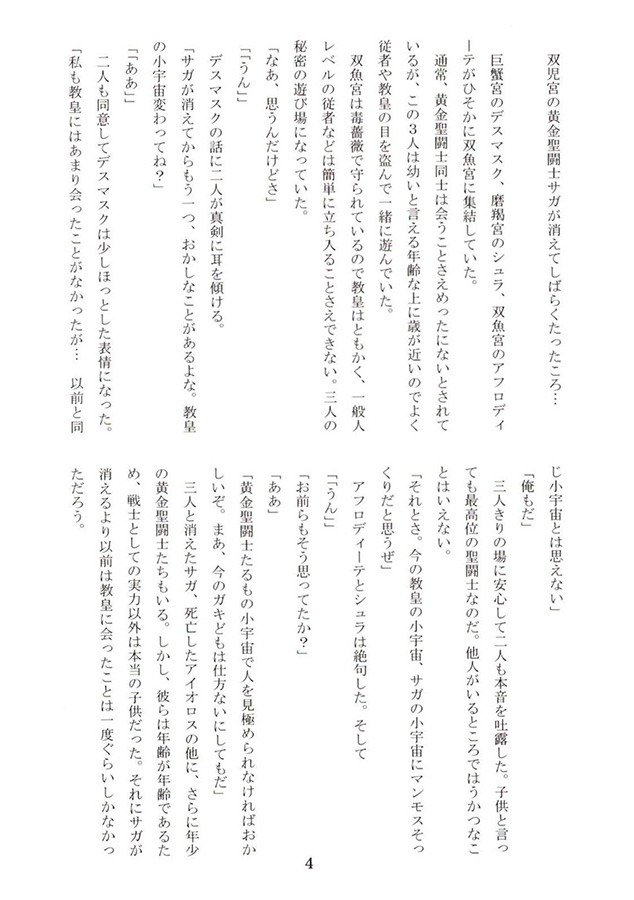 双児宮の黄金聖闘士サガが消えてしばらくたったころ…
巨蟹宮のデスマスク、磨羯宮のシュラ、双魚宮のアフロディ
ーテがひそかに双魚宮に集結していた。
通常、黄金聖闘士同士は会うことさえめったにないとされて
いるが、この3人は幼いと言える年齢な上に歳が近いのでよく
従者や教皇の目を盗んで一緒に遊んでいた。
双魚宮は毒薔薇で守られているので教皇はともかく、一般人
レベルの従者などは簡単に立ち入ることさえできない。三人の
秘密の遊び場になっていた。
「なあ、思うんだけどさ」
「「うん」」
デスマスクの話に二人が真剣に耳を傾ける。
「サガが消えてからもう一つ、おかしなことがあるよな。教皇
の小宇宙変わってね？」
「「ああ」」
二人も同意してデスマスクは少しほっとした表情になった。
「私も教皇にはあまり会ったことがなかったが…　以前と同
じ小宇宙とは思えない」
「俺もだ」
三人きりの場に安心して二人も本音を吐露した。子供と言っ
ても最高位の聖闘士なのだ。他人がいるところではうかつなこ
とはいえない。
「それとさ。今の教皇の小宇宙、サガの小宇宙にマンモスそっ
くりだと思うぜ」
「「うん」」
アフロディーテとシュラは絶句した。そして
「お前らもそう思ってたか？」
「ああ」
「黄金聖闘士たるもの小宇宙で人を見極められなければおか
しいぞ。まあ、今のガキどもは仕方ないにしてもだ」
三人と消えたサガ、死亡したアイオロスの他に、さらに年少
の黄金聖闘士たちもいる。しかし、彼らは年齢が年齢であるた
め、戦士としての実力以外は本当の子供だった。それにサガが
消えるより以前は教皇に会ったことは一度ぐらいしかなかっ
ただろう。
4